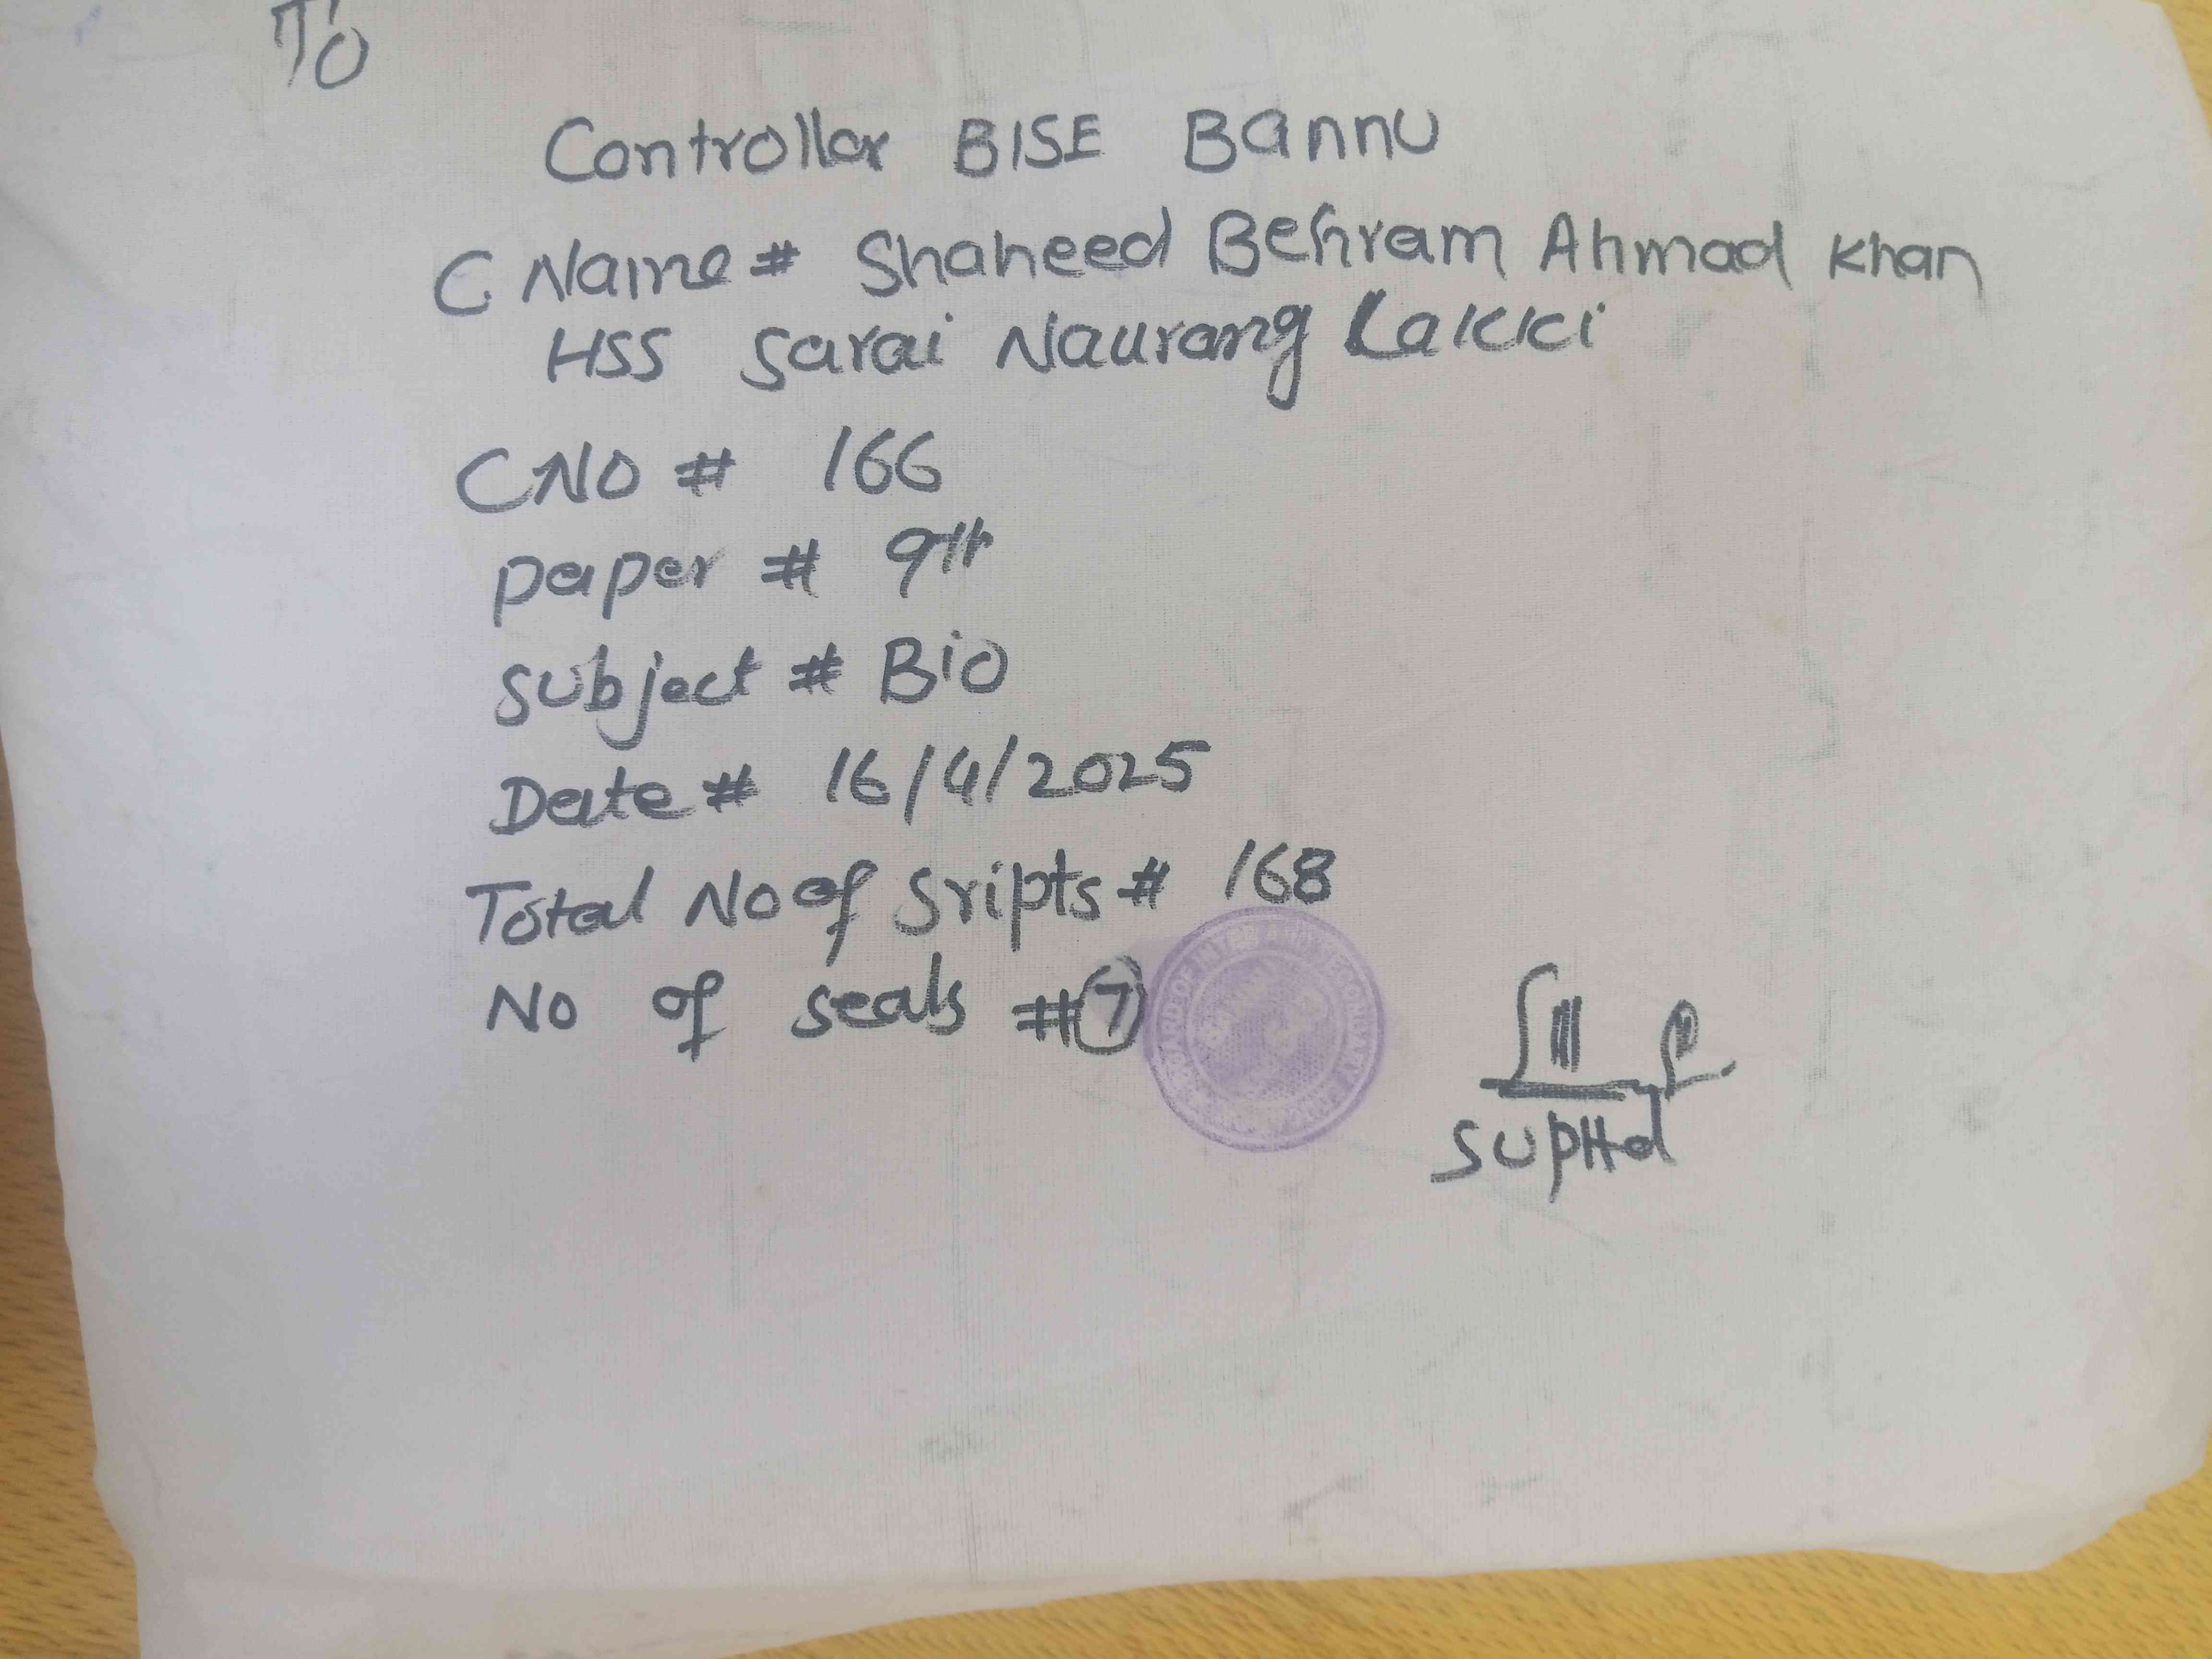 To
Controller BISE Bannu
C Name # Shaheed Behram Ahmad Khan
HSS Sarai Naurang Lakki
CNO # 166
paper # 9th
subject # Bio
Date # 16/4/2025
Total No of Sripts # 168
No of seals # 7
SUPttd